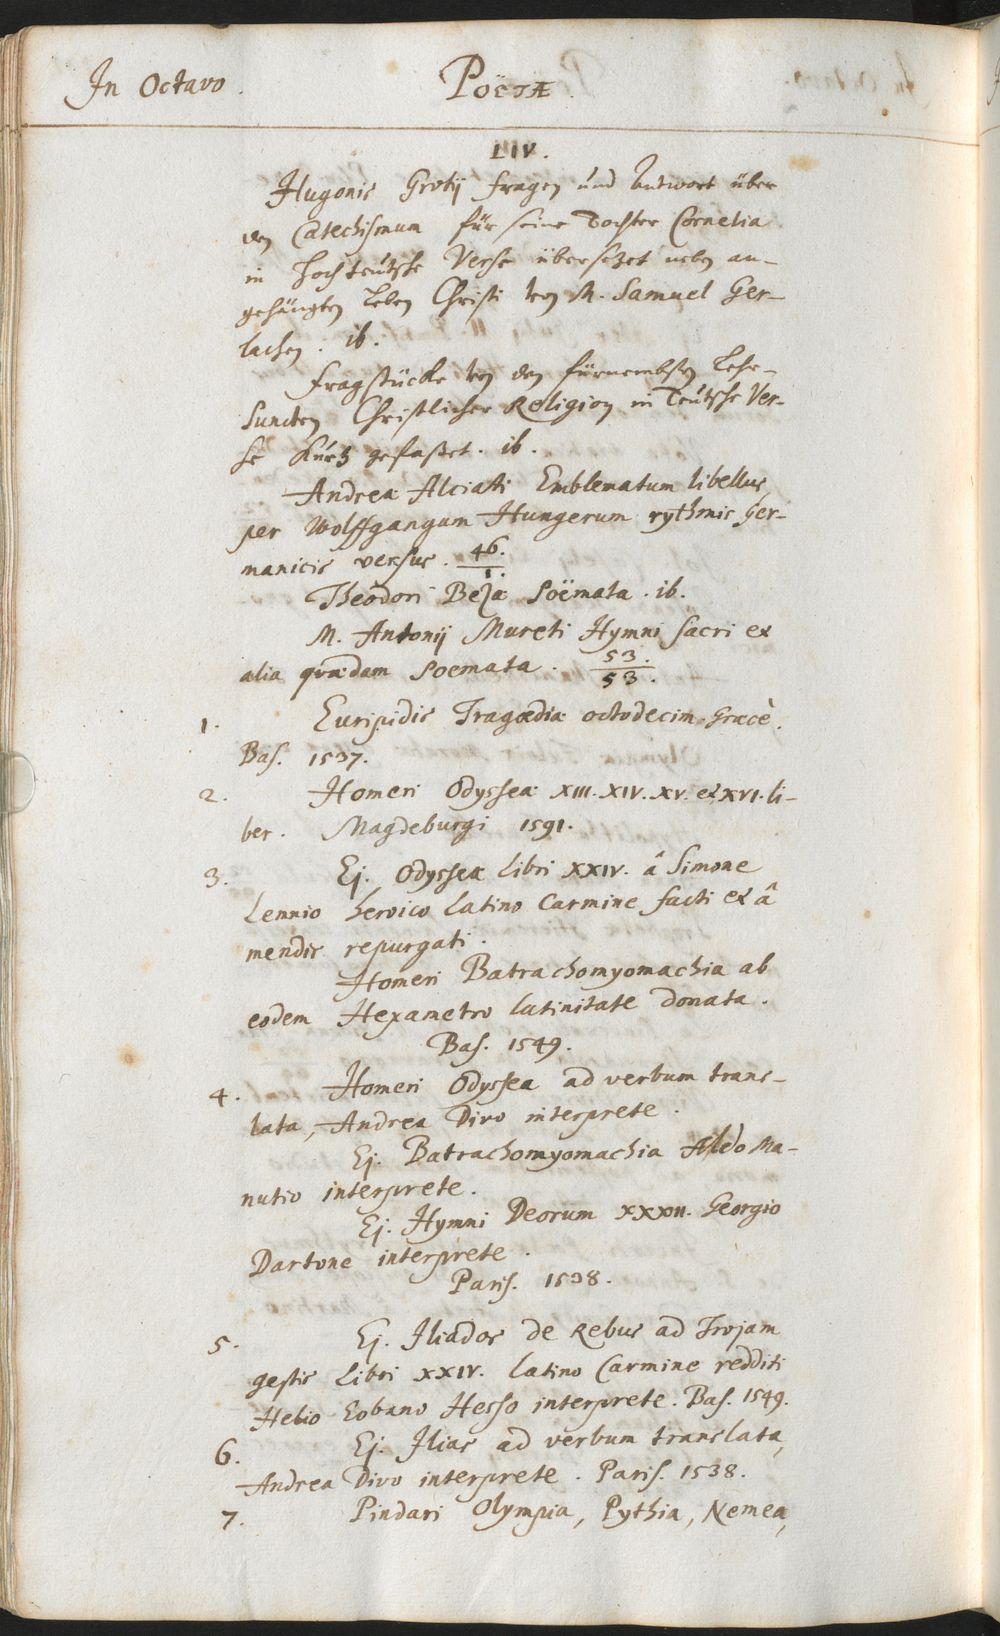 In Octavo. Poëtæ.
LIV.
Hugonis Grotij fragen und Antwort über
den Catechismum für seine Tochter Cornelia
in Hochteutsche Verse übersetzet neben an-
gehängten Leben Christi von M. Samuel Ger-
lachen. ib.
Fragstücke von den fürnembsten Lehr-
Puncten Christlicher Religion in Teutsche Ver-
se kurtz gefasset. ib.
Andreæ Alciati Emblematum libellus,
per Wolffgangum Hungerum rythmis Ger-
manicis versus. 46./1.
Theodori Bezæ Poëmata. ib.
M. Antonij Mureti Hymni sacri et
alia quædam Poemata. 53./53.
1. Euripidis Tragœdiæ octodecim Græcè.
Bas. 1537.
2. Homeri Odysseæ XIII. XIV. XV. et XVI. li-
ber. Magdeburgi 1591.
3. Ej. Odysseæ libri XXIV. â Simone
Lennio heroico latino Carmine facti et â
mendis repurgati.
Homeri Batrachomyomachia ab
eodem Hexametro latinitate donata.
Bas. 1549.
4. Homeri Odyssea ad verbum trans-
lata, Andrea Divo interprete.
Ej. Batrachomyomachia Aldo Ma-
nutio interprete.
Ej. Hymni Deorum XXXII. Georgio
Dartone interprete.
Paris. 1538.
5. Ej. Iliados de Rebus ad Trojam
gestis Libri XXIV. latino Carmine redditi
Helio Eobano Hesso interprete. Bas. 1549.
6. Ej. Ilias ad verbum translata,
Andrea Divo interprete. Paris. 1538.
7. Pindari Olympia, Pythia, Nemea,